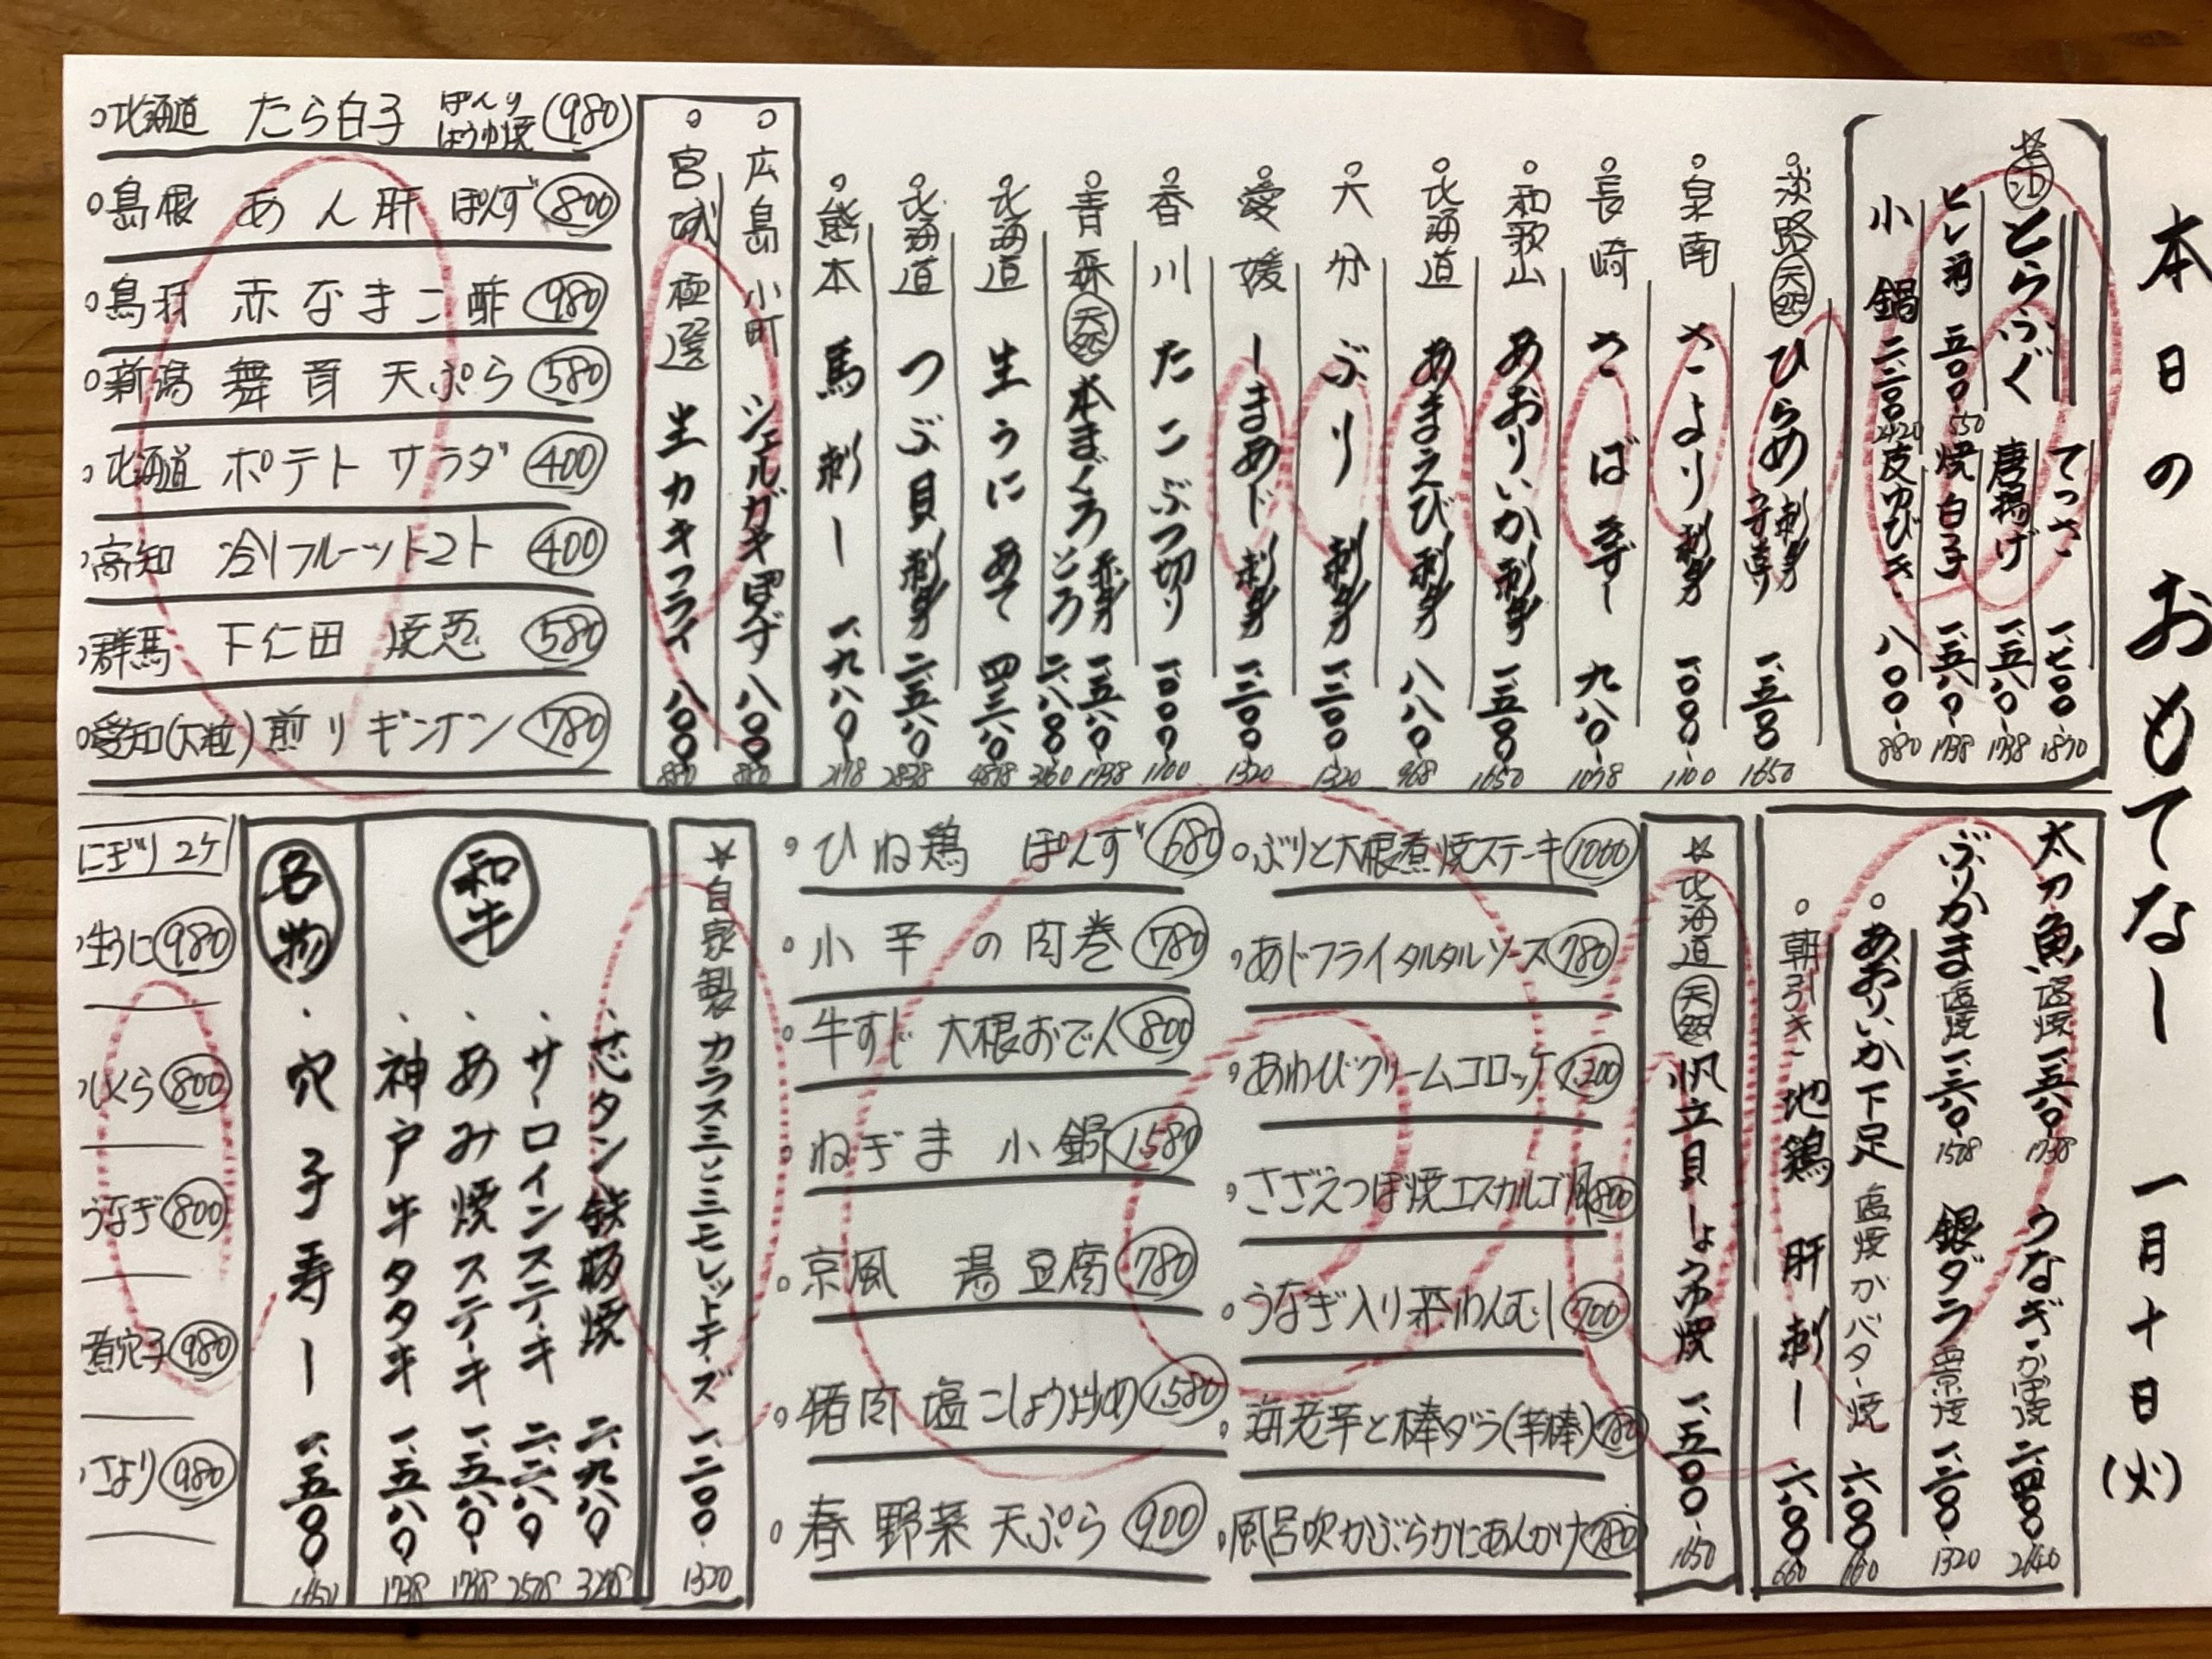 本日のおもてなし 一月十日(火)
とらふぐ
てっさ 一、七〇〇 1870
唐揚げ 一、五八〇 1738
ヒレ酒 五〇〇 550
焼白子 一、五八〇 1738
小鍋 二、二〇〇 2420
皮ゆびき 八〇〇 880
淡路 天然 ひらめ 刺身 一、五〇〇 1650
泉南 さより 刺身 一、〇〇〇 1100
長崎 さば きずし 九八〇 1078
和歌山 あおりいか 刺身 一、五〇〇 1650
北海道 あまえび 刺身 八八〇 968
大分 ぶり 刺身 一、二〇〇 1320
愛媛 しまあじ 刺身 一、二〇〇 1320
香川 たこぶつ切り 一、〇〇〇 1100
青森 天然 本まぐろ 赤身 一、五八〇 1738
とろ 二、八〇〇
北海道 生うに あて 四、三八〇 4818
北海道 つぶ貝 刺身 二、五八〇 2838
熊本 馬刺し 一、九八〇 2178
広島 小町 シェルガキ ぽんず 八〇〇 880
宮城 極選 生カキフライ 八〇〇 880
北海道 たら白子 ぽんず しょうゆ焼 980
島根 あん肝 ぽんず 800
鳥羽 赤なまこ酢 980
新潟 舞茸 天ぷら 580
北海道 ポテトサラダ 400
高知 冷しフルーツトマト 400
群馬 下仁田 焼葱 580
愛知(大粒) 煎りギンナン 780
太刀魚 塩焼 一、五八〇 1738
うなぎ・かば焼 二、四〇〇 2640
ぶりかま 塩焼 一、三八〇 1518
銀ダラ 西京焼 一、二〇〇 1320
あおりいか下足 塩焼かバター焼 六〇〇 660
朝引き 地鶏 肝刺し 六〇〇 660
☆北海道 天然 帆立貝 しょうゆ焼 一、五〇〇 1650
ぶりと大根煮焼ステーキ 1000
あじフライタルタルソース 780
あわびクリームコロッケ 1,200
さざえつぼ焼エスカルゴ風 800
うなぎ入り茶わんむし 700
海老芋と棒ダラ(芋棒) 780
風呂吹かぶらかにあんかけ 780
ひね鶏 ぽんず 680
小芋の肉巻 780
牛すじ 大根おでん 800
ねぎま 小鍋 1,580
京風 湯豆腐 780
猪肉 塩こしょう炒め 1,580
春野菜 天ぷら 900
☆自家製 カラスミとミモレットチーズ 一、二〇〇 1320
和牛
芯タン鉄板焼 二、九八〇 3278
サーロインステーキ 二、二八〇 2508
あみ焼ステーキ 一、五八〇 1738
神戸牛タタキ 一、五八〇 1738
名物
穴子寿し 一、五〇〇 1650
にぎり 2ケ
生うに 980
いくら 800
うなぎ 800
煮穴子 980
さより 980